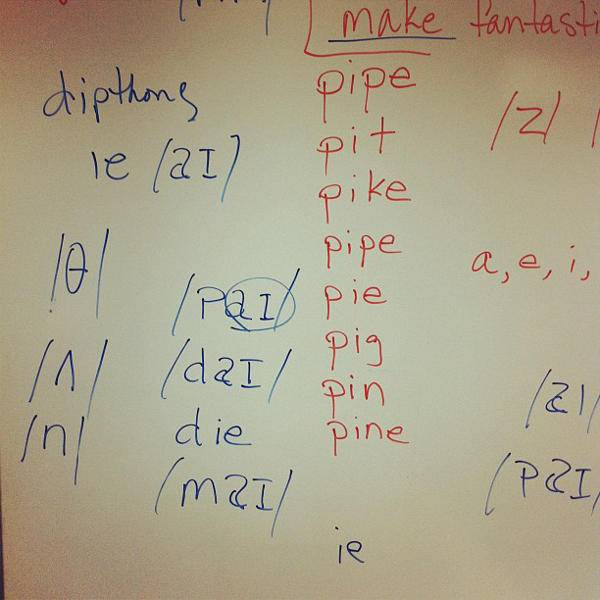 make fantasti
dipthong
ie /aɪ/
pipe
pit
pike
pipe
pie
pig
pin
pine
/z/
a, e, i,
/θ/
/ʌ/
/n/
/paɪ/
/daɪ/
die
/maɪ/
/aɪ/
/paɪ/
ie